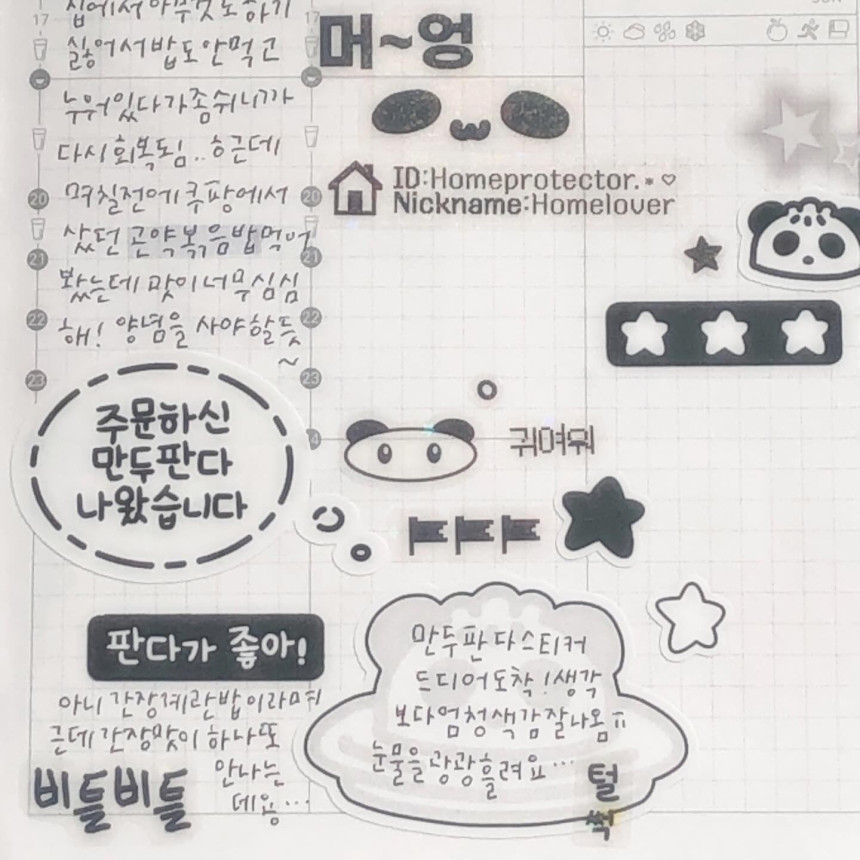 집에서 아무것도 하기
싫어서 밥도 안먹고
누워있다가 좀 쉬니까
다시 회복되님.. 흐근데
며칠전에 쿠팡에서
샀던 곤약볶음밥먹어
봤는데 맛이 너무 심심
해! 양념을 사야할듯
~
주문하신
만두판다
나왔습니다
판다가 좋아!
아니 간장계란밥이라며
근데 간장맛이 하나도
안나는
데용...
비틀비틀
17
20
21
22
23
머~엉
ID:Homeprotector.*♡
Nickname:Homelover
귀여워
만두판다스티커
드디어 도착! 생각
보다 엄청 색감 잘나옴ㅠ
눈물을 광광 흘려요...
털
썩
17
20
21
22
23